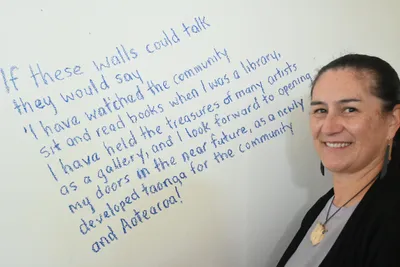 If these walls could talk
they would say
'I have watched the community
sit and read books when I was a library,
I have held the treasures of many artists
as a gallery, and I look forward to opening
my doors in the near future, as a newly
developed taonga for the community
and Aotearoa!'